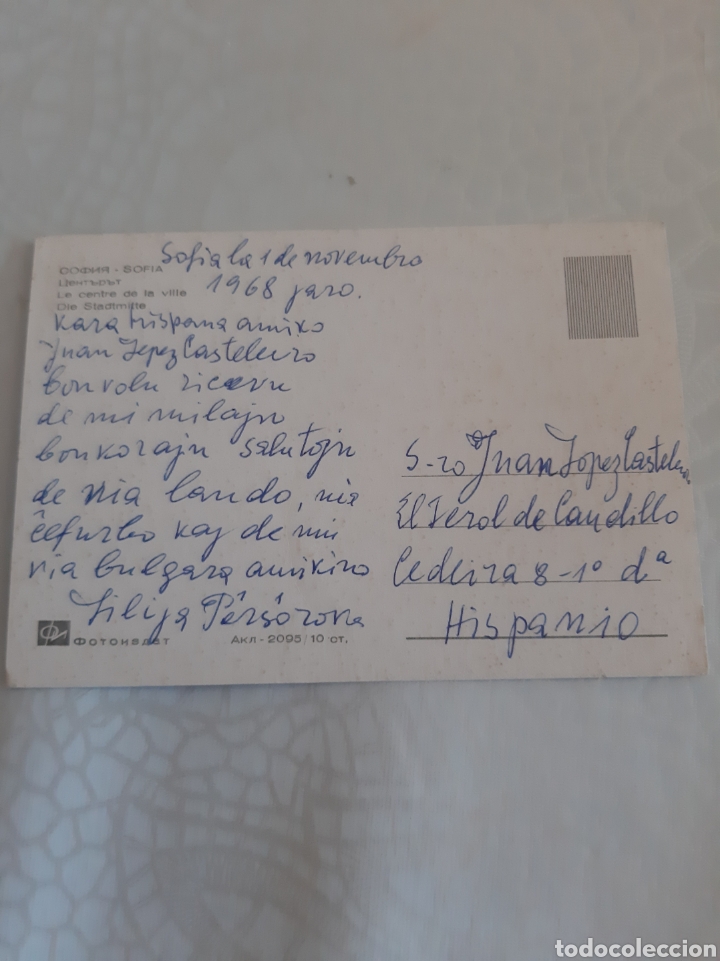 Sofia la 1 de novembro
1968 jaro.
СОФИЯ - SOFIA
Центърът
Le centre de la ville
Die Stadtmitte
Kara Hispana amiko
Juan Lopez Casteleiro
bonvolu ricevu
de mi milajn
bonkorajn salutojn
de nia lando, nia
ĉefurbo kaj de mi
via bulgara amikino
Lilija
Фотоиздат
Акл - 2095/10 ст.
S-ro Juan Lopez Casteleiro
El Ferol de Caudillo
Cedeira 8-1º dª
Hispanio
todocoleccion